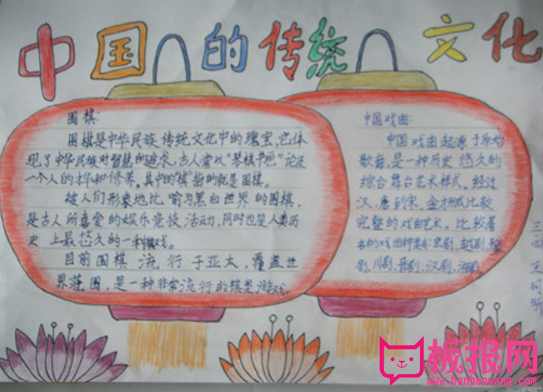 中国的传统文化
围棋:
围棋是中华民族传统文化中的瑰宝,它体
现了中华民族对智慧的追求,古人常以"琴棋书画"论及
一个人的才华和修养,其中的"棋"指的就是围棋。
被人们形象地比喻为黑白世界的围棋,
是古人所喜爱的娱乐竞技活动,同时也是人类历
史上最悠久的一种棋戏。
目前围棋流行于亚太,覆盖世
界范围,是一种非常流行的棋类游戏。
中国戏曲:
中国戏曲起源于原始
歌舞,是一种历史悠久的
综合舞台艺术样式。经过
汉、唐到宋、金才形成比较
完整的戏曲艺术。比较著
名的戏曲种类有京剧、越剧、
剧、川剧、晋剧、汉剧、
三四 王
板报网
www.banbaowang.com